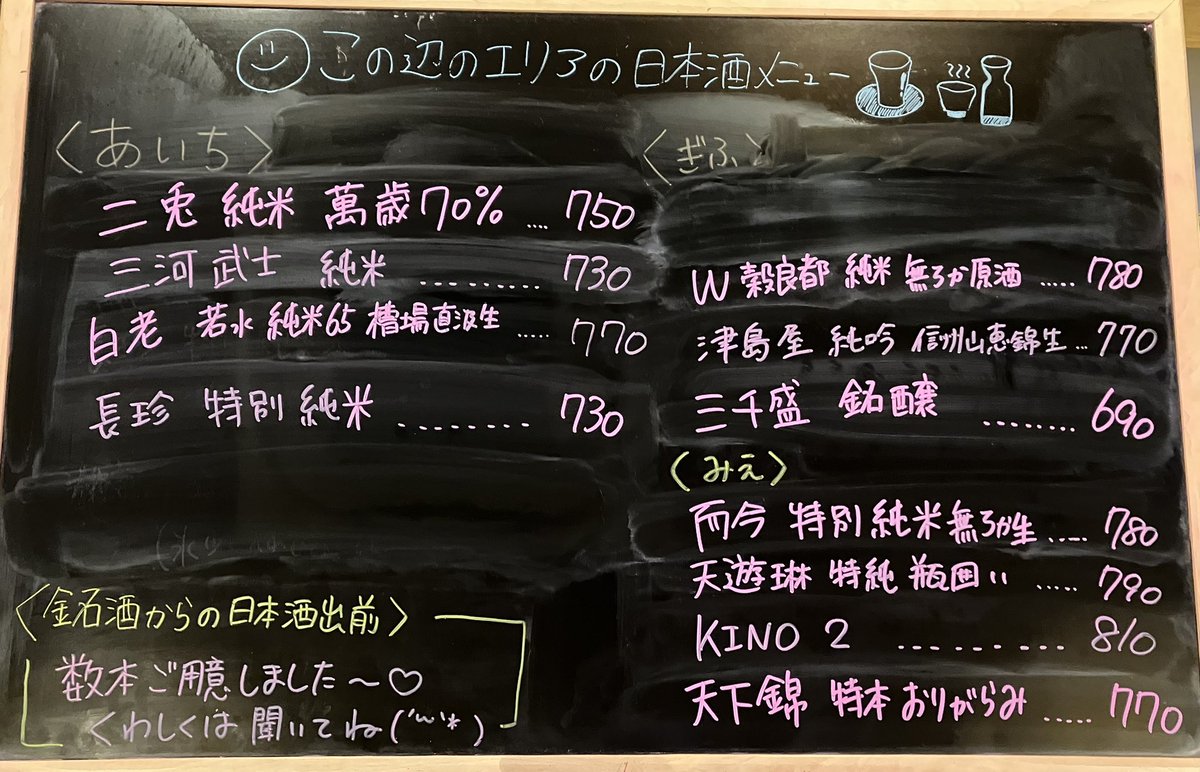 この辺のエリアの日本酒メニュー
〈あいち〉
二兎 純米 萬歳70% .... 750
三河武士 純米 ......... 730
白老 若水 純米65 槽場直汲生 ..... 770
長珍 特別純米 ........ 730
〈ぎふ〉
W 穀良都 純米 無ろか原酒 ..... 780
津島屋 純吟 信州山恵錦生 ... 770
三千盛 銘醸 ........ 690
〈みえ〉
而今 特別純米無ろか生 ..... 780
天遊琳 特純 瓶囲い ..... 790
KINO 2 .......... 810
天下錦 特本 おりがらみ ..... 770
〈金石酒からの日本酒出前〉
数本ご用意しました〜♡
くわしくは聞いてね('ω'*)